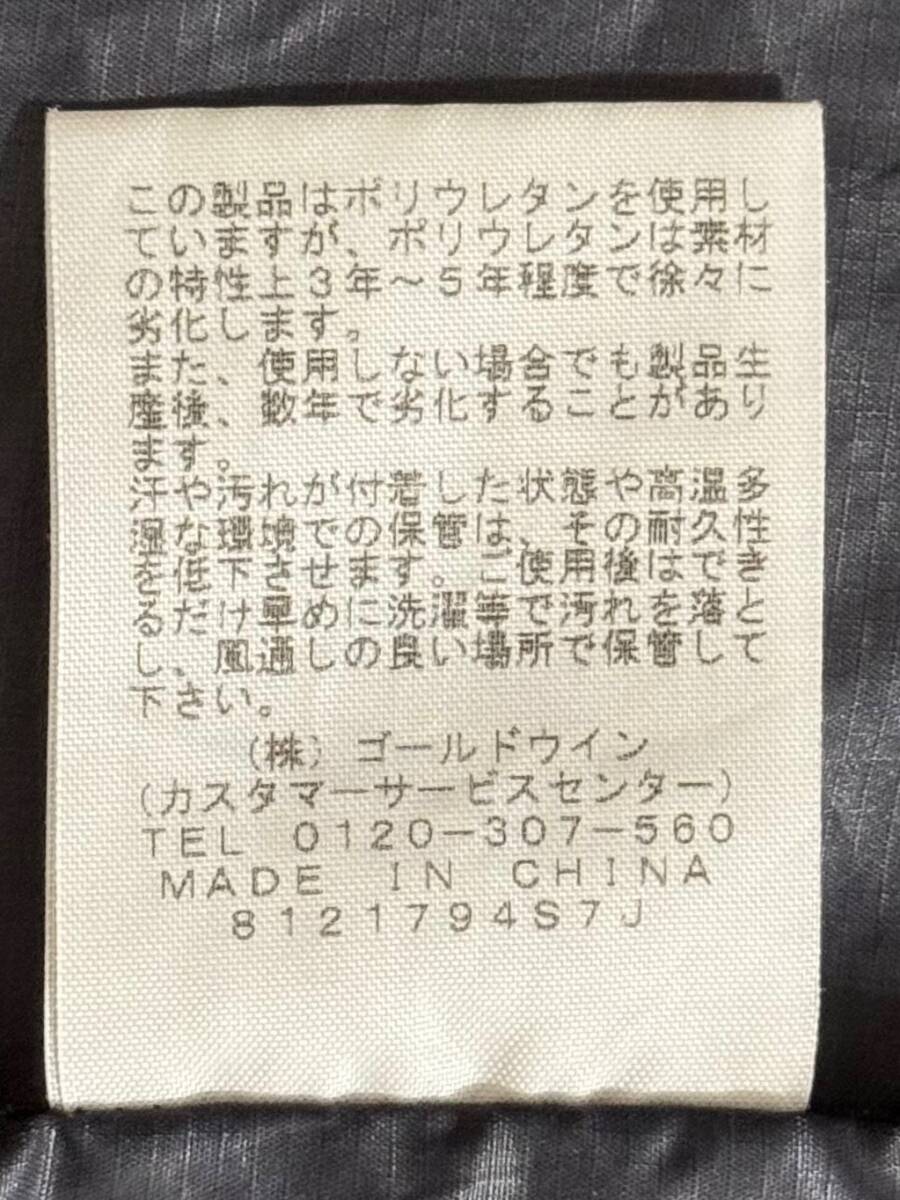 この製品はポリウレタンを使用し
ていますが、ポリウレタンは素材
の特性上３年～５年程度で徐々に
劣化します。
また、使用しない場合でも製品生
産後、数年で劣化することがあり
ます。
汗や汚れが付着した状態や高温多
湿な環境での保管は、その耐久性
を低下させます。ご使用後はでき
るだけ早めに洗濯等で汚れを落と
し、風通しの良い場所で保管して
下さい。
（株）ゴールドウイン
（カスタマーサービスセンター）
ＴＥＬ　０１２０－３０７－５６０
ＭＡＤＥ　ＩＮ　ＣＨＩＮＡ
８１２１７９４Ｓ７Ｊ